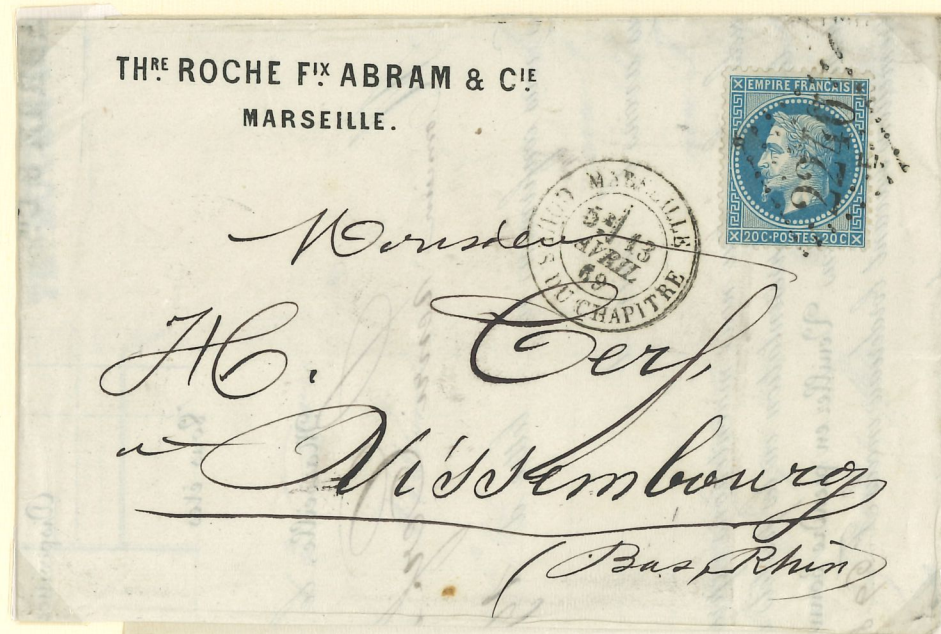 THRE ROCHE FIX ABRAM & CIE
MARSEILLE.
EMPIRE FRANCAIS
20 C·POSTES·20 C
MARSEILLE
13
AVRIL
69
DU CHAPITRE
Monsieur
H. Cerf,
à Wissembourg
(Bas Rhin)